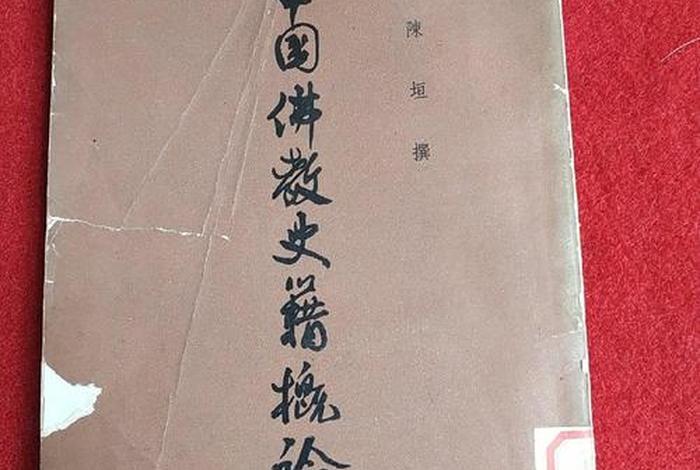 陳垣撰
中國佛教史籍概論